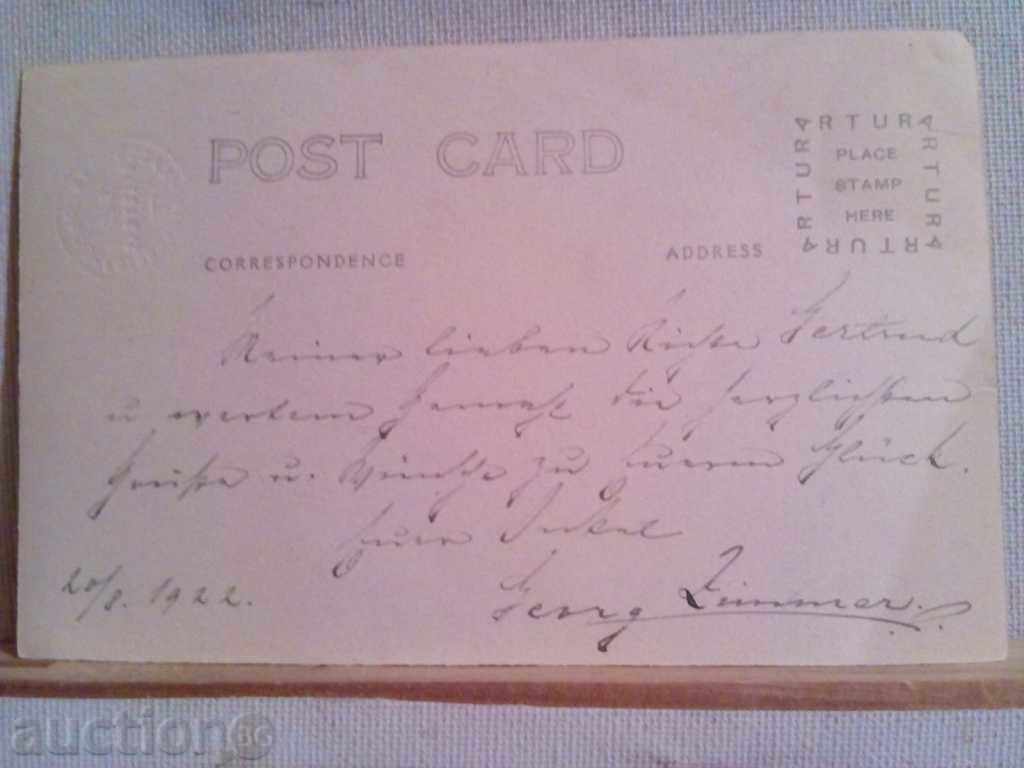 POST CARD
ARTURA
ARTURA
ARTURA
ARTURA
PLACE
STAMP
HERE
CORRESPONDENCE
ADDRESS
Meiner lieben Nichte Gertrud
u. wertem Gemahl die herzlichsten
Grüße u. Wünsche zu Eurem Glück.
Euer Onkel
20/8. 1922.
Georg Zimmer.
auction BG